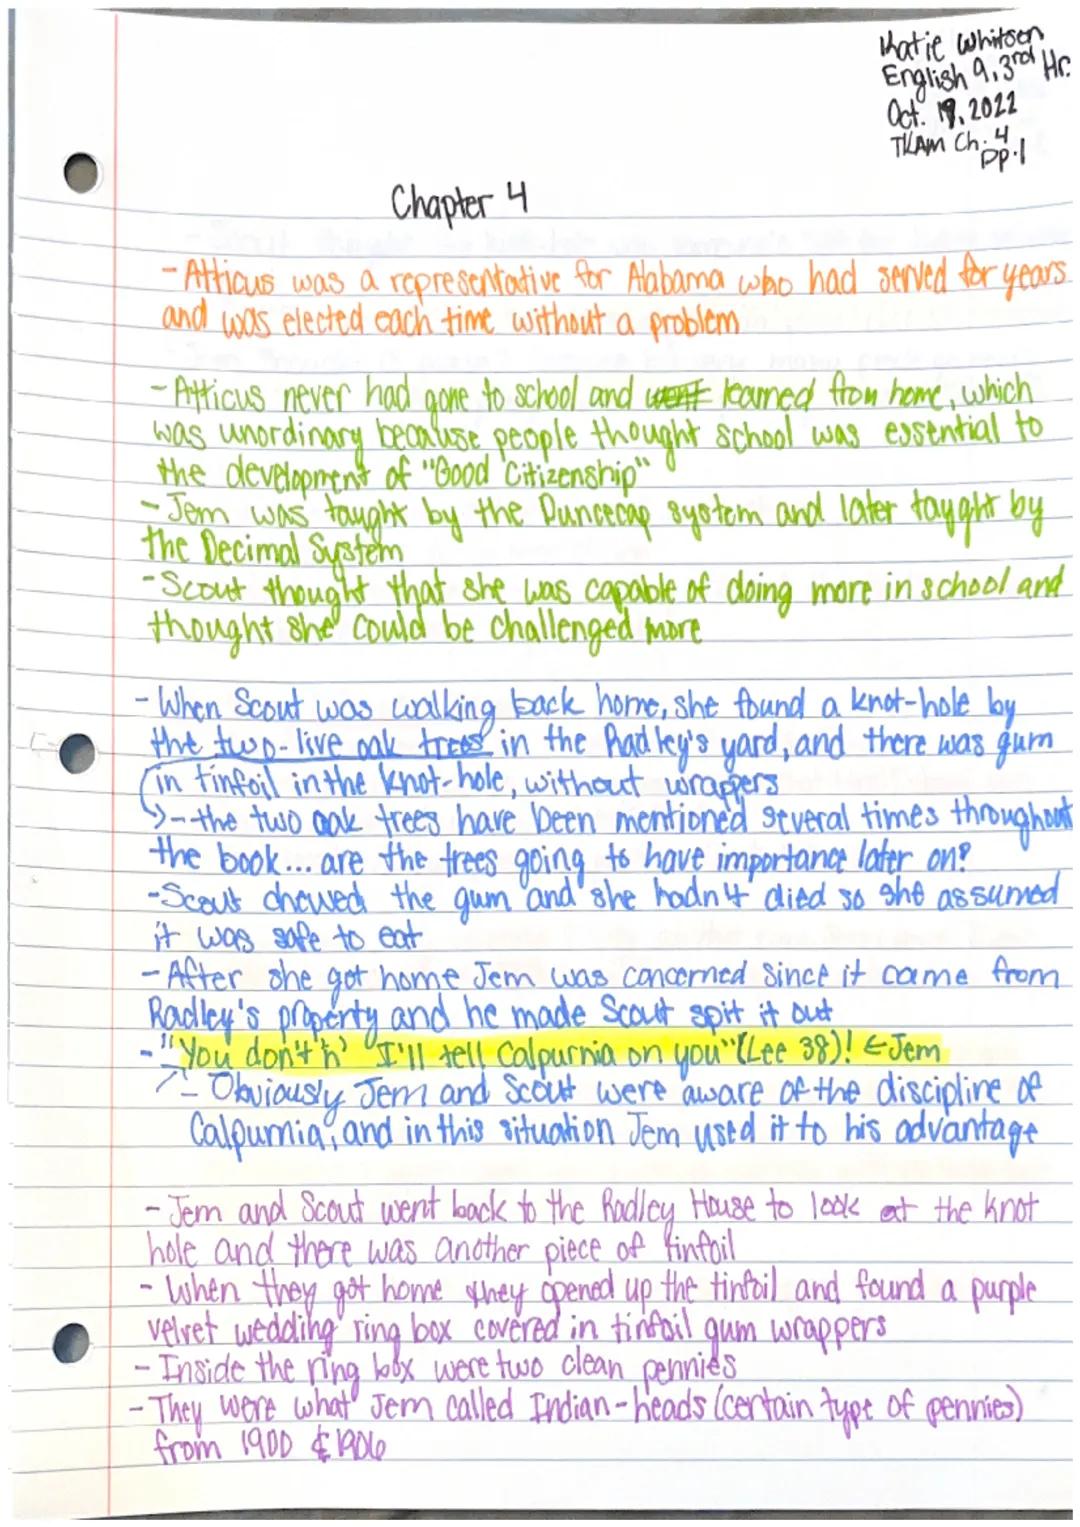 Katie Whitson
English 9, 3rd Hr.
Oct. 19, 2022
TKAM Ch. 4
pp. 1
Chapter 4
- Atticus was a representative for Alabama who had served for years
and was elected each time without a problem
- Atticus never had gone to school and went learned from home, which
was unordinary because people thought school was essential to
the development of "Good Citizenship"
- Jem was taught by the Duncecap system and later taught by
the Decimal System
- Scout thought that she was capable of doing more in school and
thought she could be challenged more
- When Scout was walking back home, she found a knot-hole by
the two-live oak trees in the Radley's yard, and there was gum
in tinfoil in the knot-hole, without wrappers
→--the two oak trees have been mentioned several times throughout
the book... are the trees going to have importance later on?
-Scout chewed the gum and she hadn't died so she assumed
it was safe to eat
- After she got home Jem was concerned since it came from
Radley's property and he made Scout spit it out
- "You don't n' I'll tell Calpurnia on you" (Lee 38)! ← Jem
- Obviously Jem and Scout were aware of the discipline of
Calpurnia, and in this situation Jem used it to his advantage
- Jem and Scout went back to the Radley House to look at the knot
hole and there was another piece of tinfoil
- When they got home they opened up the tinfoil and found a purple
velvet wedding ring box covered in tinfoil gum wrappers
- Inside the ring box were two clean pennies
- They were what Jem called Indian-heads (certain type of pennies)
from 1900 & 1906